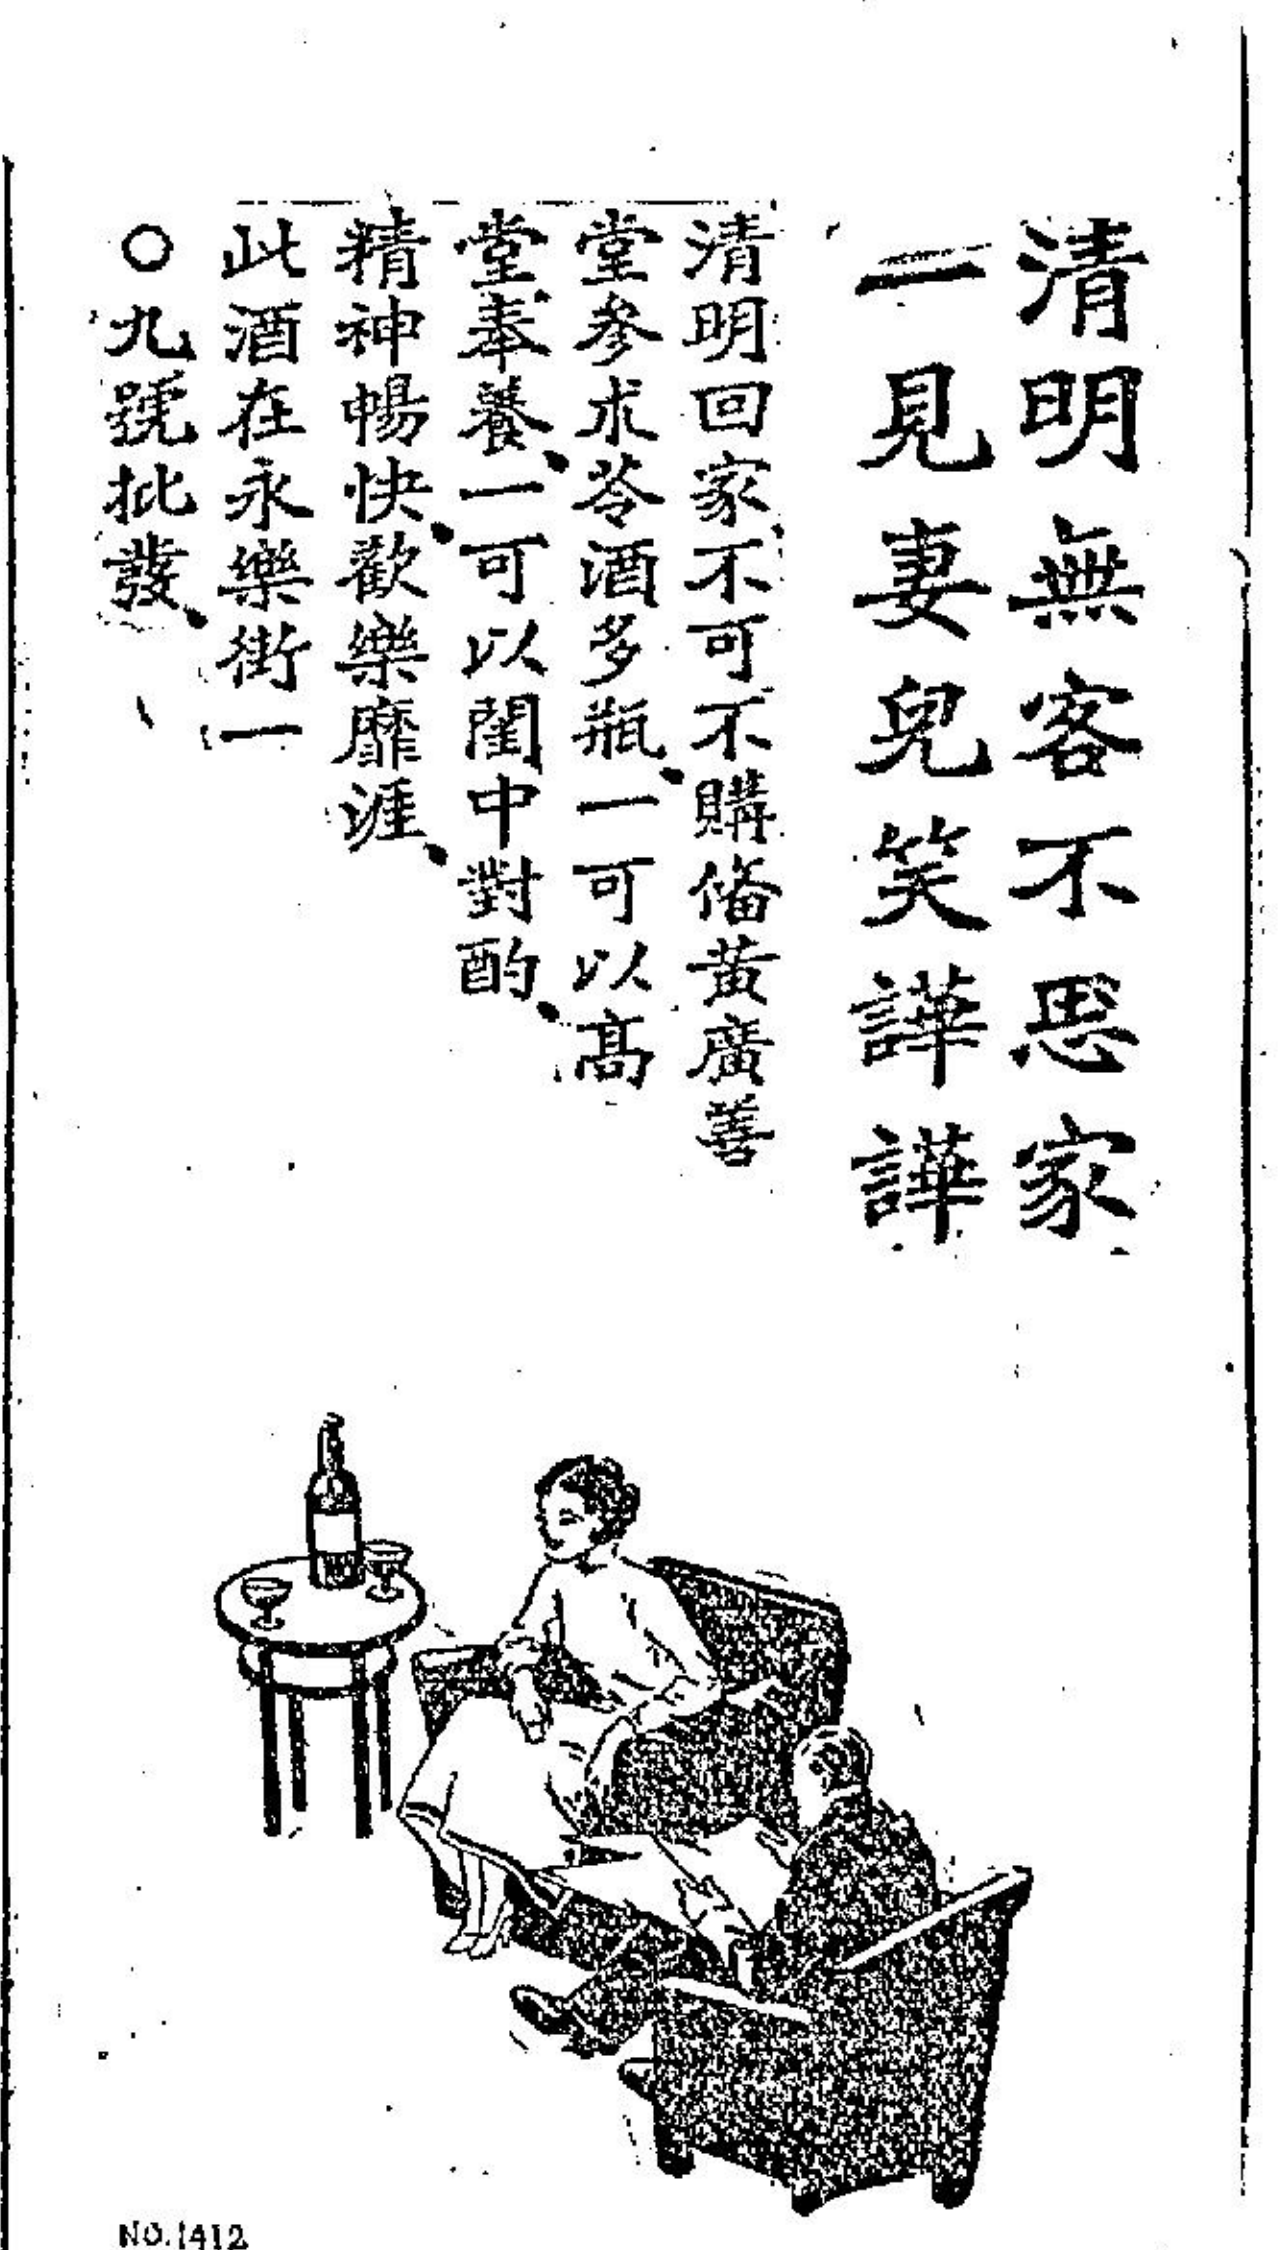 清明無客不思家
一見妻兒笑譁譁
清明回家、不可不購俻黃廣善
堂參朮苓酒多瓶、一可以高
堂奉養、一可以閨中對酌、
精神暢快、歡樂靡涯、
此酒在永樂街一
○九號批發、
NO.1412